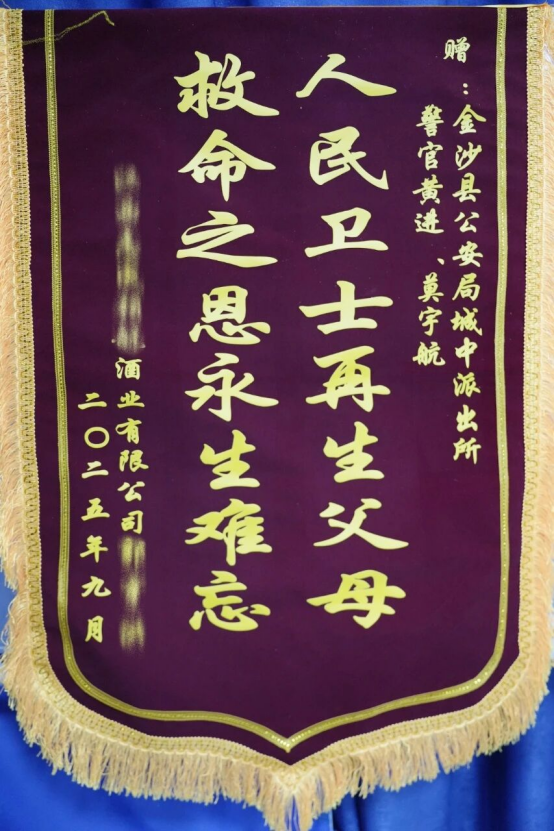 赠：金沙县公安局城中派出所
警官黄进、莫宇航
人民卫士再生父母
救命之恩永生难忘
酒业有限公司
二〇二五年九月